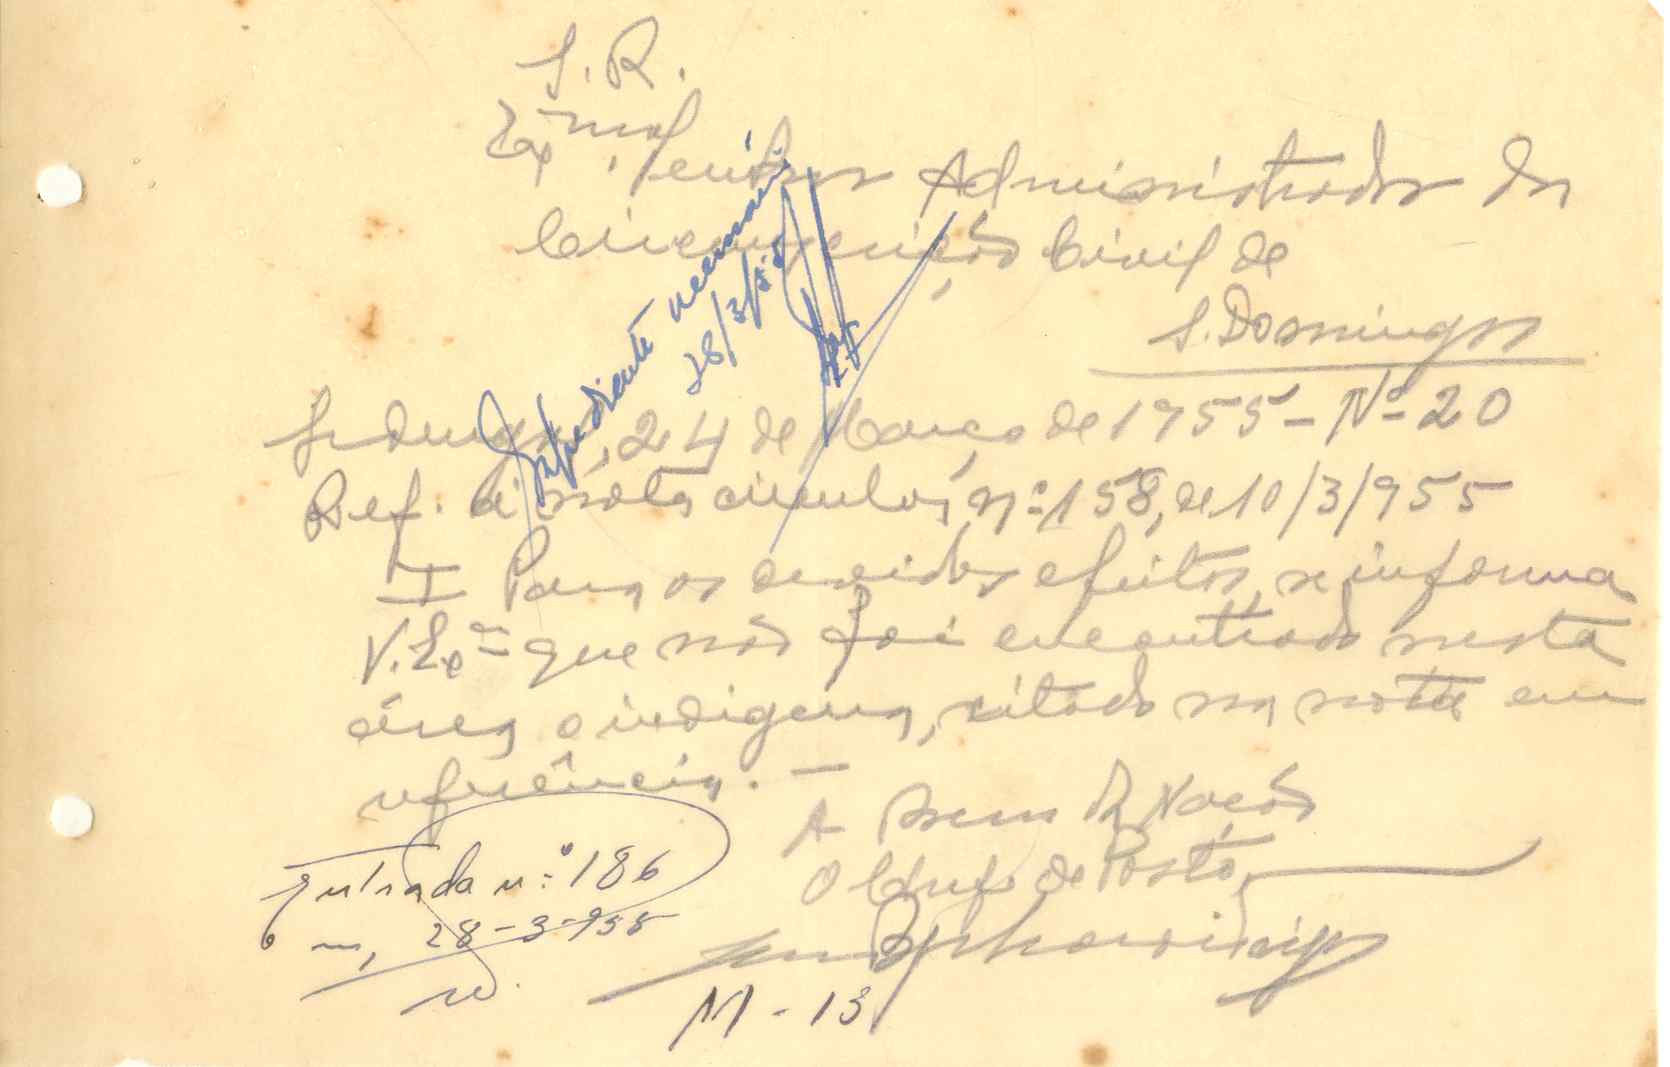 S. R.
Exmº. Senhor Administrador da
Circunscrição Civil de
S. Domingos
24 de Março de 1955 - Nº 20
Ref. à nota circular, nº 158, de 10/3/955
I Para os devidos efeitos, se informa
V. Exª que não foi encontrado nesta
área, o indígena, citado na nota em
referência. —
A Bem da Nação
O Chefe de Posto,
Expediente
28/3/55
Entrada nº 186
Em, 28-3-955
M - 13